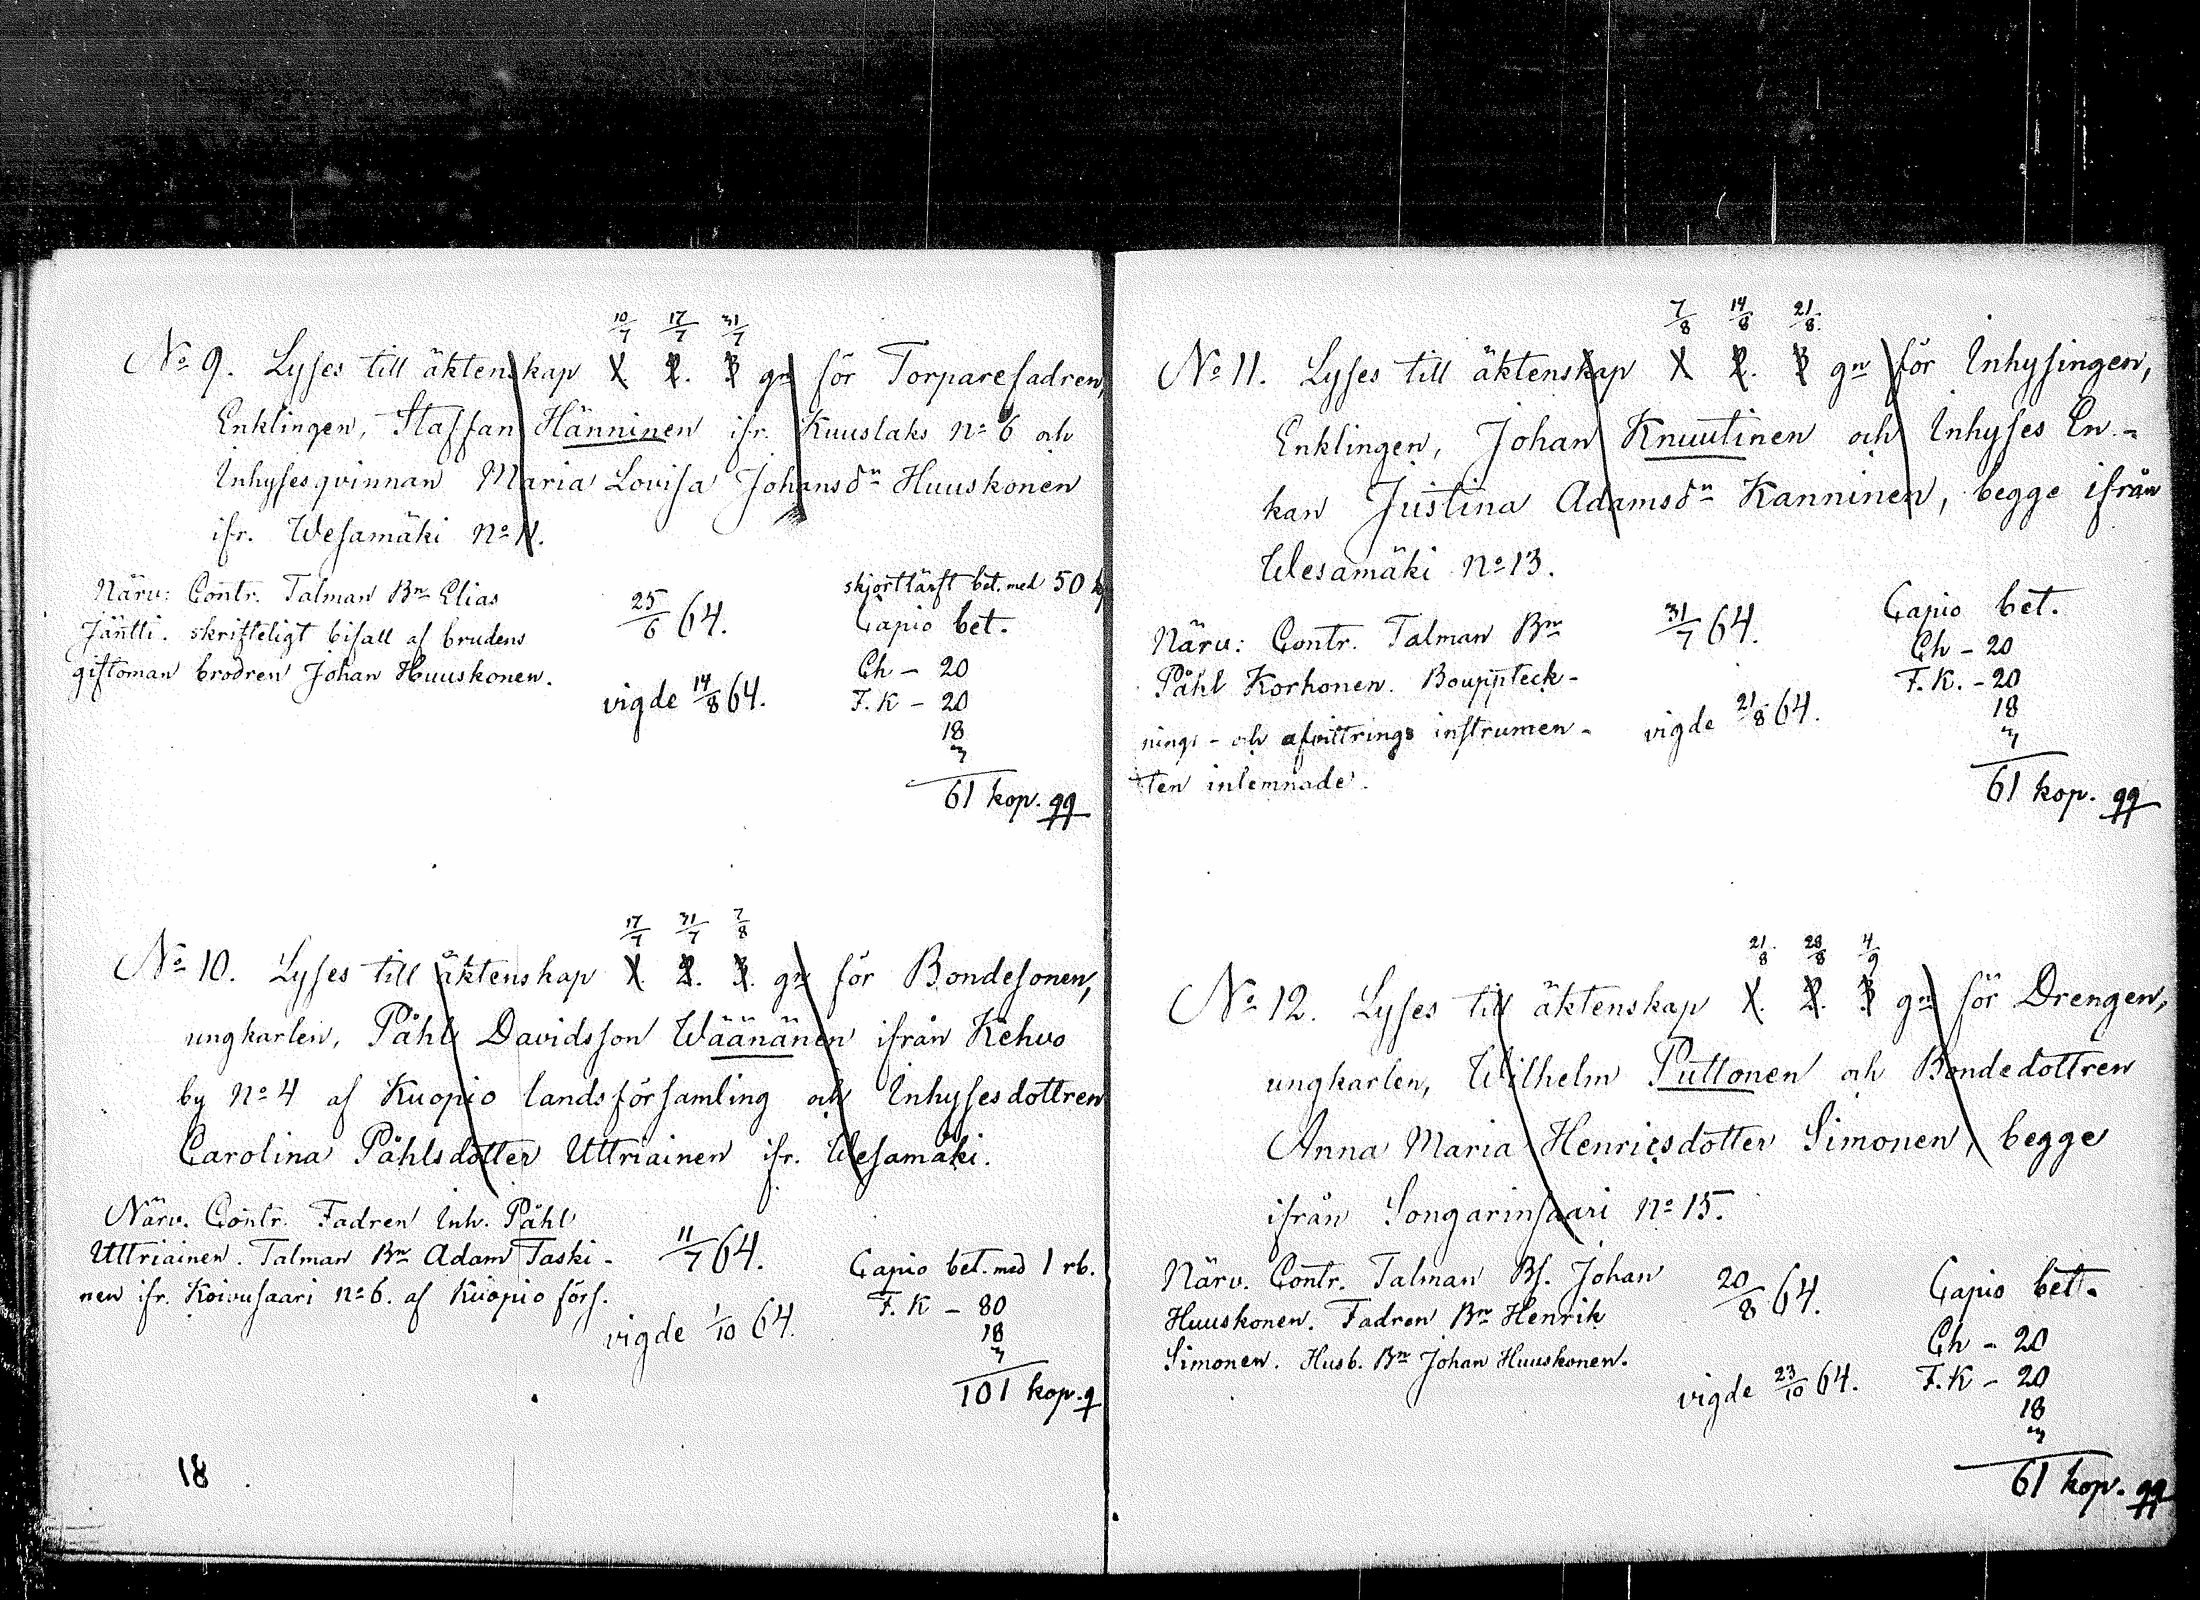 10/7 17/7 31/7
No 9. Lyses till äktenskap 1. 2. 3 gn för Torparefadren,
Enklingen, Staffan Hänninen ifr. Kuuslaks no 6 och
Inhysesqvinnan Maria Lovisa Johansdn Huuskonen
ifr. Wesamäki no 11.
Närv: Contr. Talman Bn Elias
Jäntti. skrifteligt bifall af brudens
giftoman brodren Johan Huuskonen.
25/6 64.
vigde 14/8 64.
skjortlärft bet. med 50 k
Capio bet.
Ch - 20
F. K - 20
18
3
61 kop. qq
17/7 31/7 7/8
No 10. Lyses till äktenskap 1. 2. 3. gn för Bondesonen,
ungkarlen, Påhl Davidsson Wäänänen ifrån Kehvo
by no 4 af Kuopio landsförsamling och Inhysesdottren
Carolina Påhlsdotter Uttriainen ifr. Wesamäki.
Närv. Contr. Fadren Inh. Påhl
Uttriainen. Talman Bn Adam Taski-
nen ifr. Koivusaari no 6. af Kuopio förs.
11/7 64.
vigde 1/10 64.
Capio bet. med 1 rb.
F. K - 80
18
3
101 kop. q
18
7/8 14/8 21/8
No 11. Lyses till äktenskap 1 2. 3 gn för Inhysingen,
Enklingen, Johan Knuutinen och Inhyses En-
kan Justina Adamsdn Kanninen, begge ifrån
Wesamäki no 13.
Närv: Contr. Talman Bn
Påhl Korhonen. Bouppteck-
nings- och afvittrings instrumen-
ten inlemnade.
31/7 64.
vigde 21/8 64.
Capio bet.
Ch - 20
F. K. - 20
18
3
61 kop. qq
21/8 28/8 4/9
No 12. Lyses till äktenskap 1. 2. 3 gn för Drengen,
ungkarlen, Wilhelm Puttonen och Bondedottren
Anna Maria Henricsdotter Simonen, begge
ifrån Songarinsaari no 15.
Närv. Contr. Talman Bs. Johan
Huuskonen. Fadren Bn Henrik
Simonen. Husb. Bn Johan Huuskonen.
20/8 64.
vigde 23/10 64.
Capio bet.
Ch - 20
F. K - 20
18
3
61 kop. qq